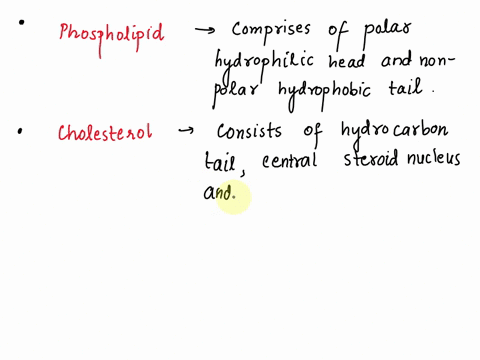 • Phospholipid → Comprises of polar
hydrophilic head and non-
polar hydrophobic tail.
• Cholesterol → Consists of hydrocarbon
tail, central steroid nucleus
and.